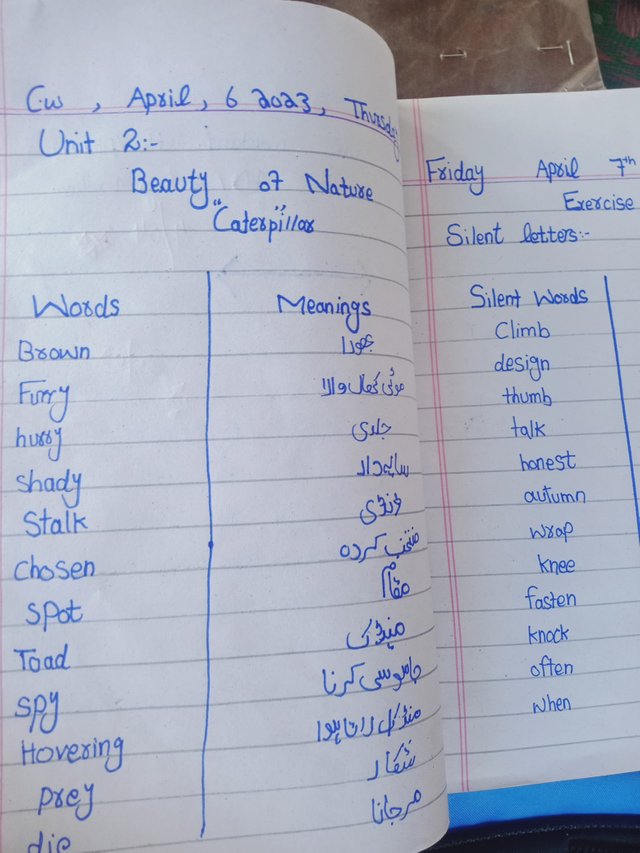 C.w , April, 6 2023, Thursday
Unit 2:-
Beauty of Nature
"Caterpillar"
Words Meanings
Brown بھورا
Furry موٹی کھال والا
hurry جلدی
shady سایہ دار
Stalk ڈنڈی
Chosen منتخب کردہ
Spot مقام
Toad مینڈک
Spy جاسوسی کرنا
Hovering منڈلاتا ہوا
prey شکار
die مرجانا
Friday April 7th
Exercise
Silent letters:-
Silent Words
Climb
design
thumb
talk
honest
autumn
wrap
knee
fasten
knock
often
when